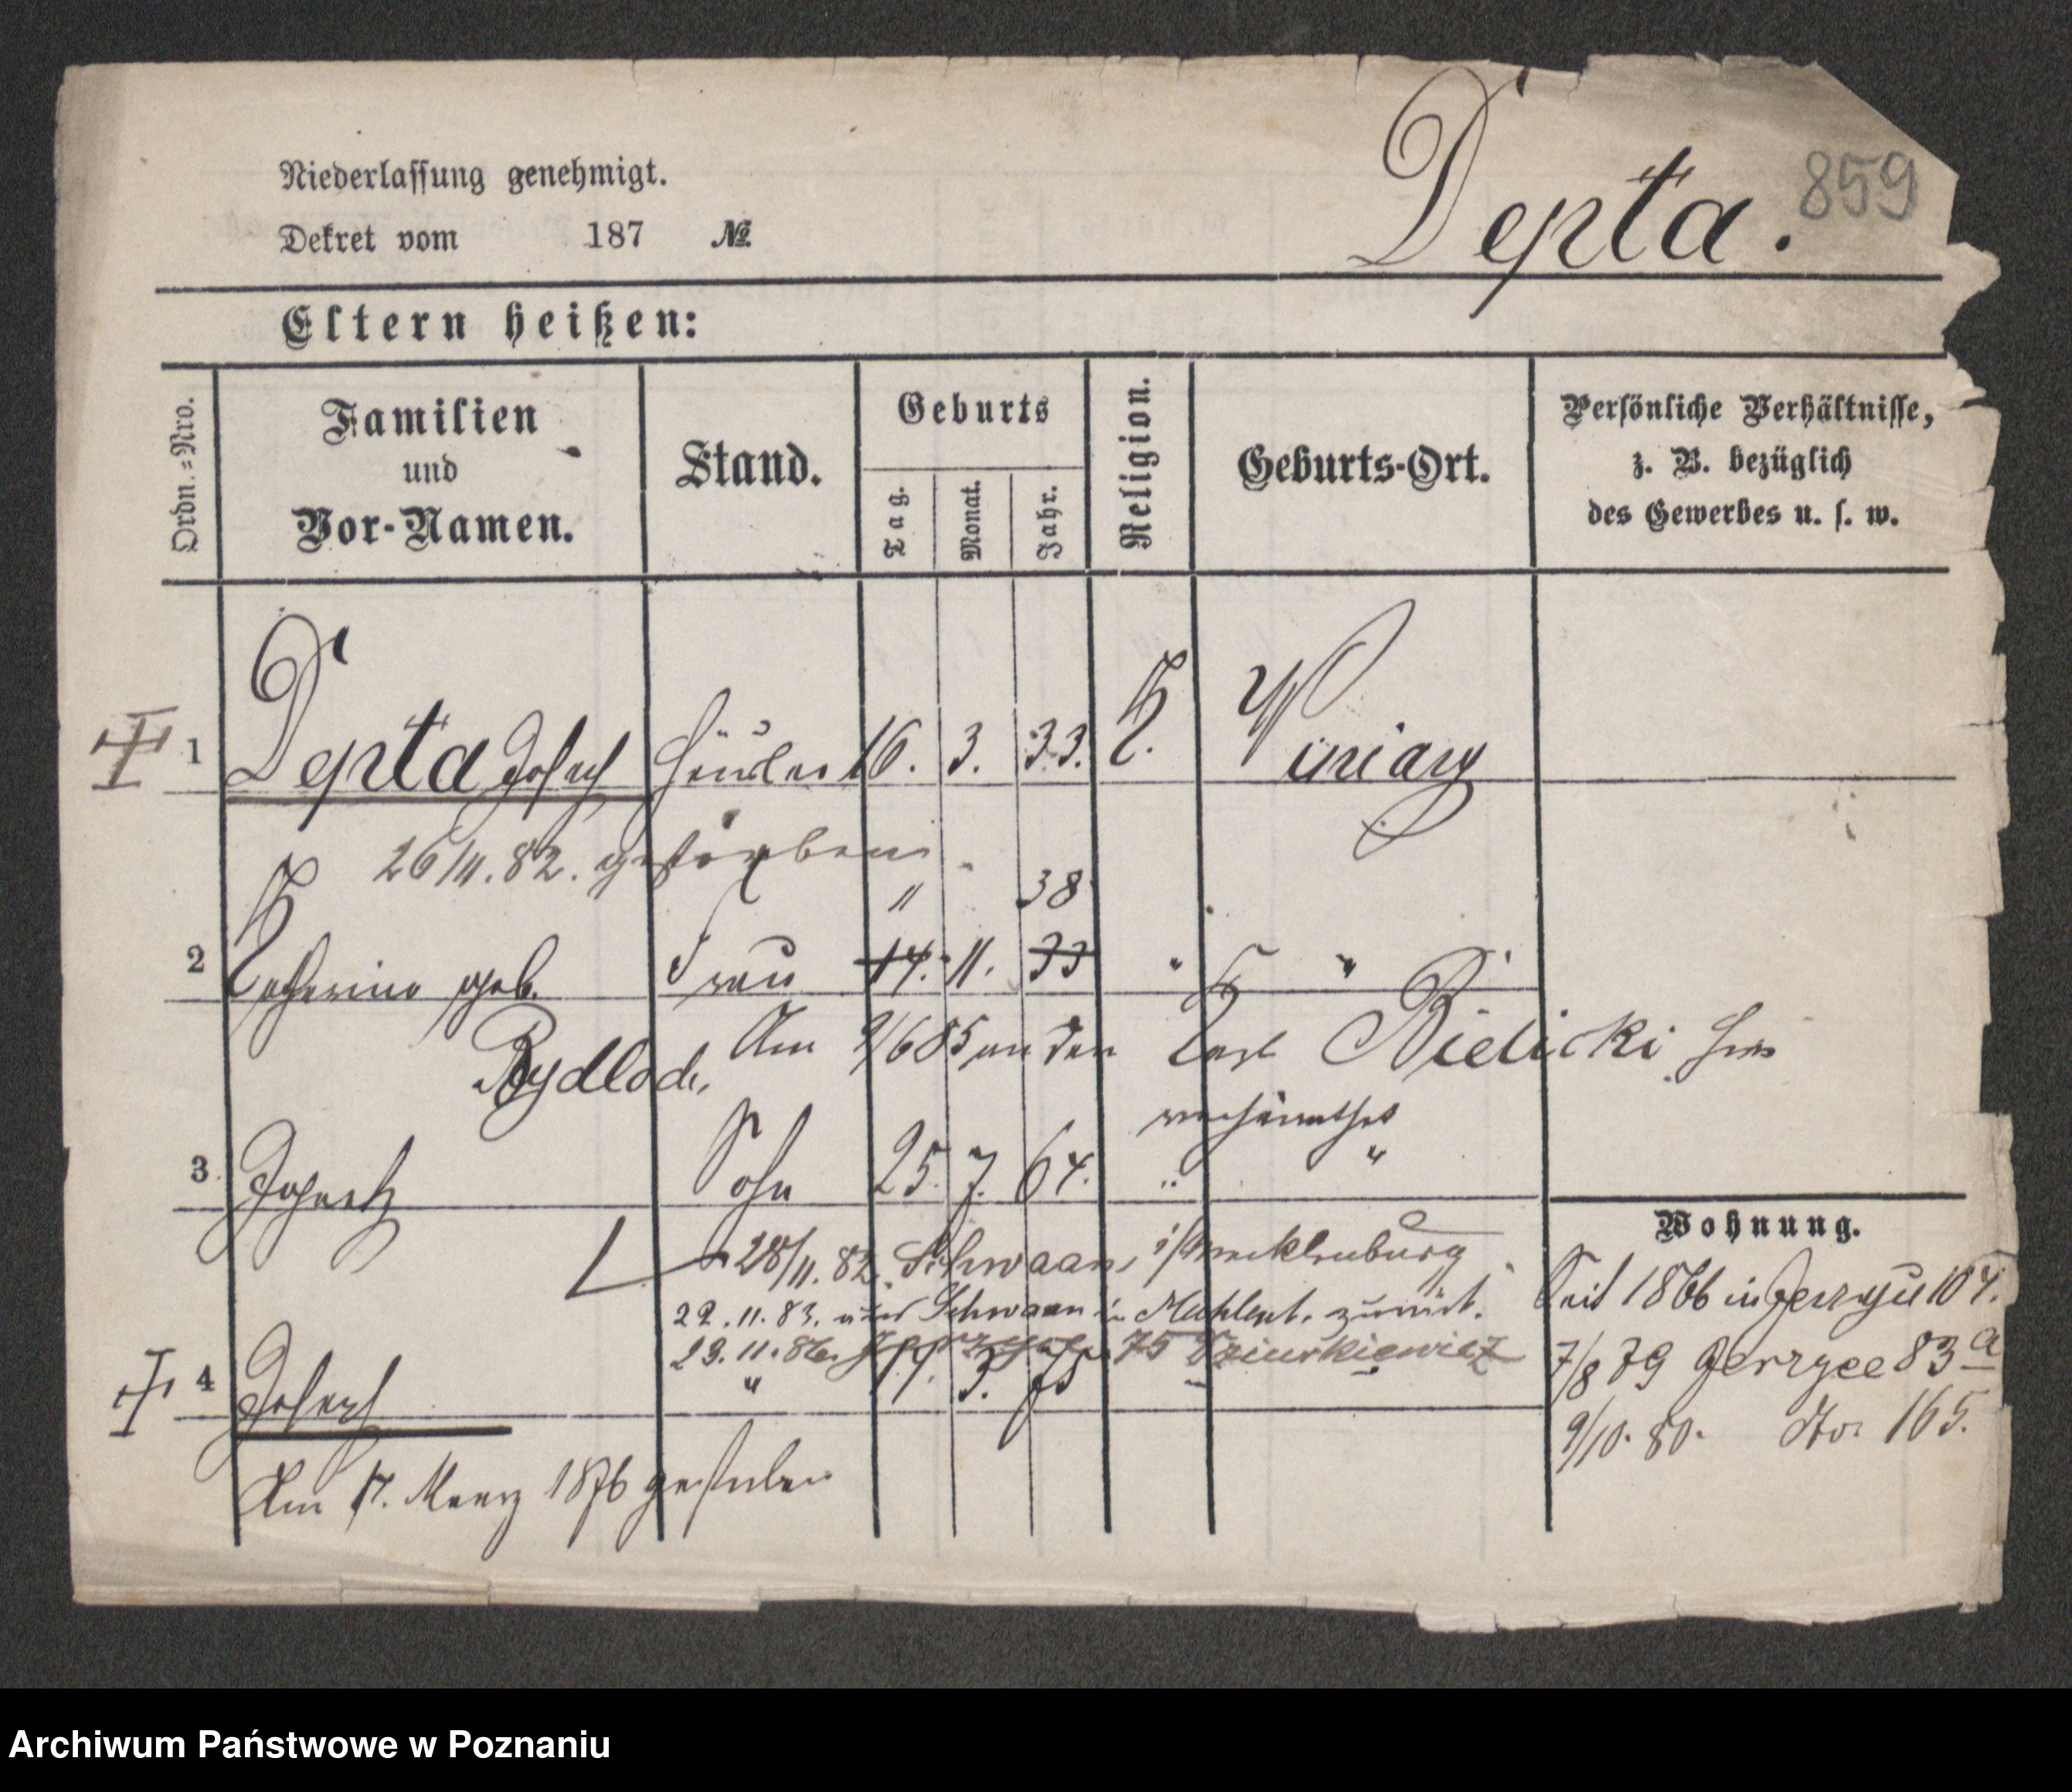 859
Depta.
Niederlassung genehmigt.
Dekret vom 187 №
Eltern heißen:
Ordn.-Nro.
Familien
und
Vor-Namen.
Stand.
Geburts
Tag.
Monat.
Jahr.
Religion.
Geburts-Ort.
Persönliche Verhältnisse,
z. B. bezüglich
des Gewerbes u. s. w.
1 Depta Joseph Häusler 16. 3. 33. K. Winiary
26/11. 82. gestorben
" 38
2 Catharina geb. Frau 14. 11. 33 " "
Rydlod. Am 9/6 85 an den Carl Bielicki hier
verheirathet
3 Ignatz Sohn 25. 7. 64. " "
28/11. 82. Schwaan i/Mecklenburg
22. 11. 83. aus Schwaan in Mecklenb. zurück.
29. 11. 86. 75
4 Joseph " 19. 3. 75
Am 17. Maerz 1876 gestorben
Wohnung.
Seit 1866 in Jerzyce 104.
7/8 79 Jerzyce 83 a
9/10. 80. dto. 165.
Archiwum Państwowe w Poznaniu